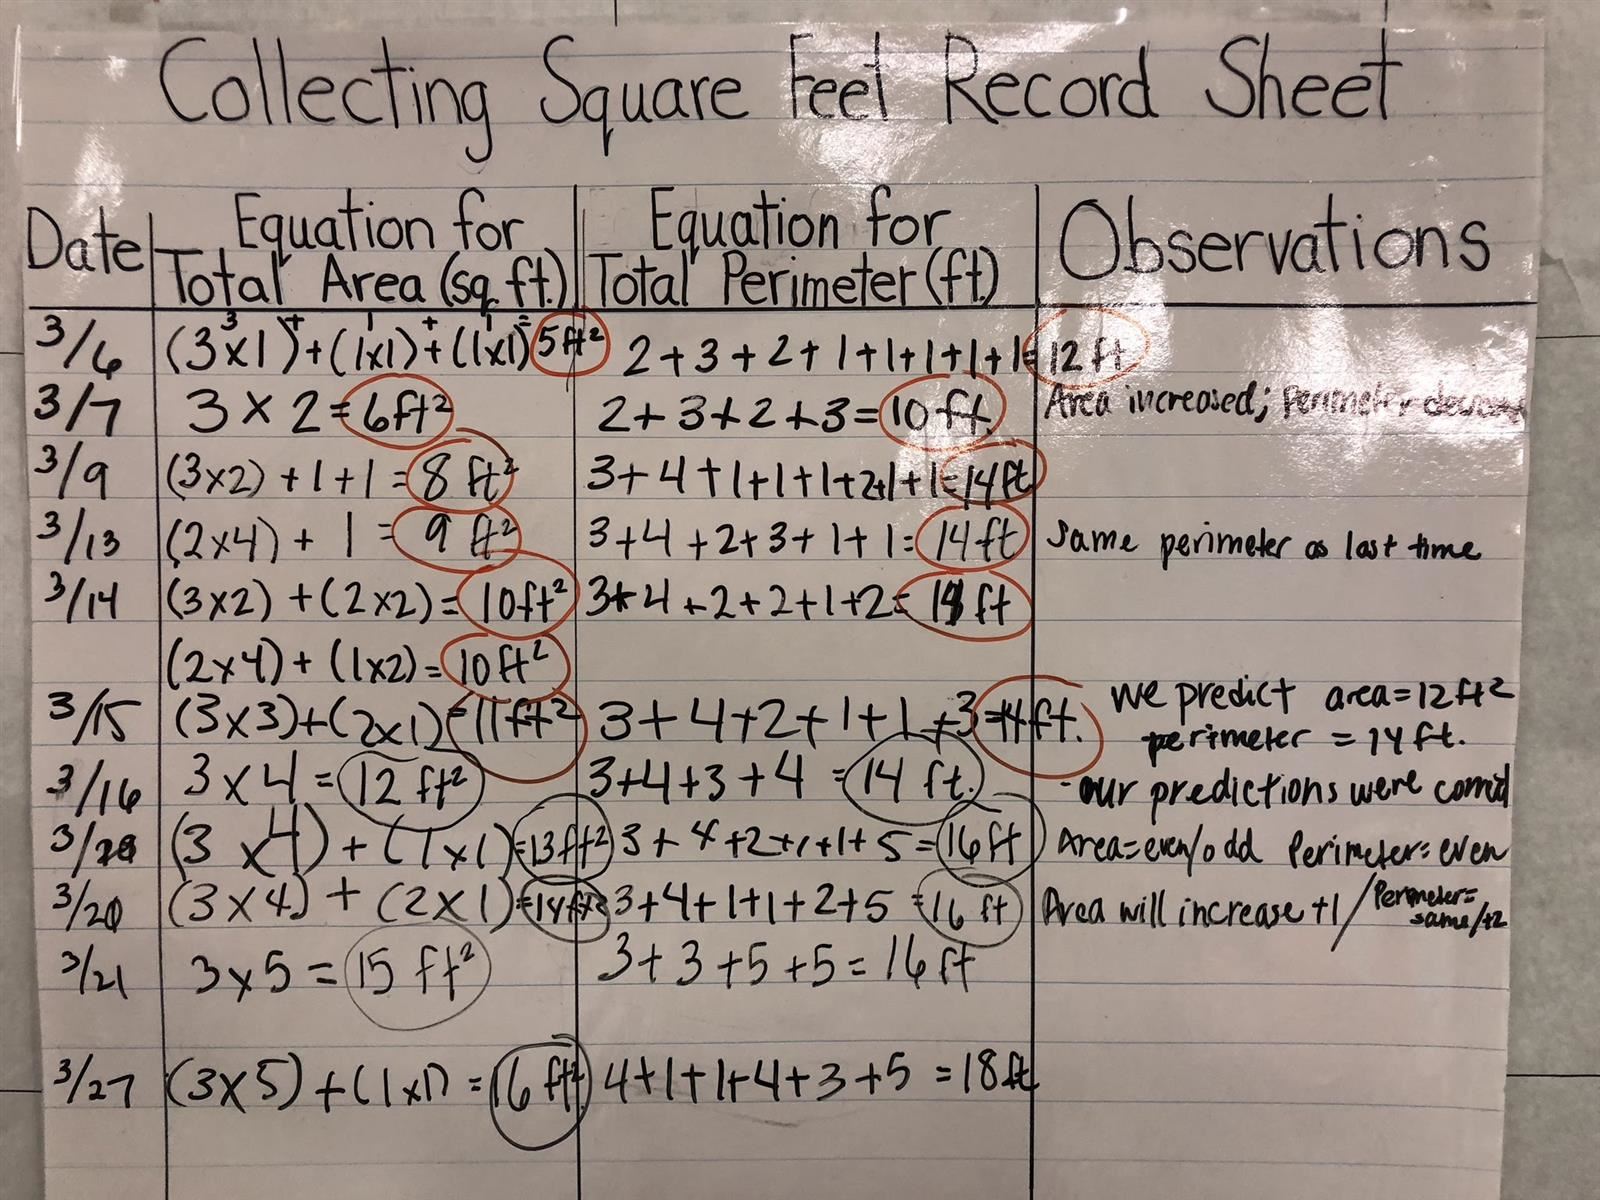 Collecting Square Feet Record Sheet
Date
Equation for
Total Area (sq. ft.)
Equation for
Total Perimeter (ft)
Observations
3/6 (3x1)+(1x1)+(1x1) 5ft² 2+3+2+1+1+1+1+1= 12 ft
3 + 1 + 1 =
3/7 3 x 2 = 6ft² 2+3+2+3= 10 ft. Area increased; perimeter
3/9 (3x2) +1+1 = 8 ft² 3+4+1+1+1+2+1+1= 14ft
3/13 (2x4) + 1 = 9 ft² 3+4+2+3+1+1= 14ft Same perimeter as last time
3/14 (3x2) +(2x2)= 10ft² 3+4+2+2+1+2= 14 ft
(2x4)+(1x2)= 10ft²
3/15 (3x3)+(2x1)=11ft² 3+4+2+1+1+3=14ft. We predict area=12ft²
perimeter = 14ft.
3/16 3x4 = 12 ft² 3+4+3+4 = 14 ft. -our predictions were
3/20 (3 x4)+(1x1)=13ft² 3+4+2+1+1+5 = 16ft Area=even/odd Perimeter=even
3/20 (3x4)+(2x1)=14ft² 3+4+1+1+2+5 = 16 ft Area will increase +1/Perimeter=
same/+2
3/21 3x5 = 15 ft² 3+3+5+5=16ft
3/27 (3x5)+(1x1) = 16 ft² 4+1+1+4+3+5 =18ft